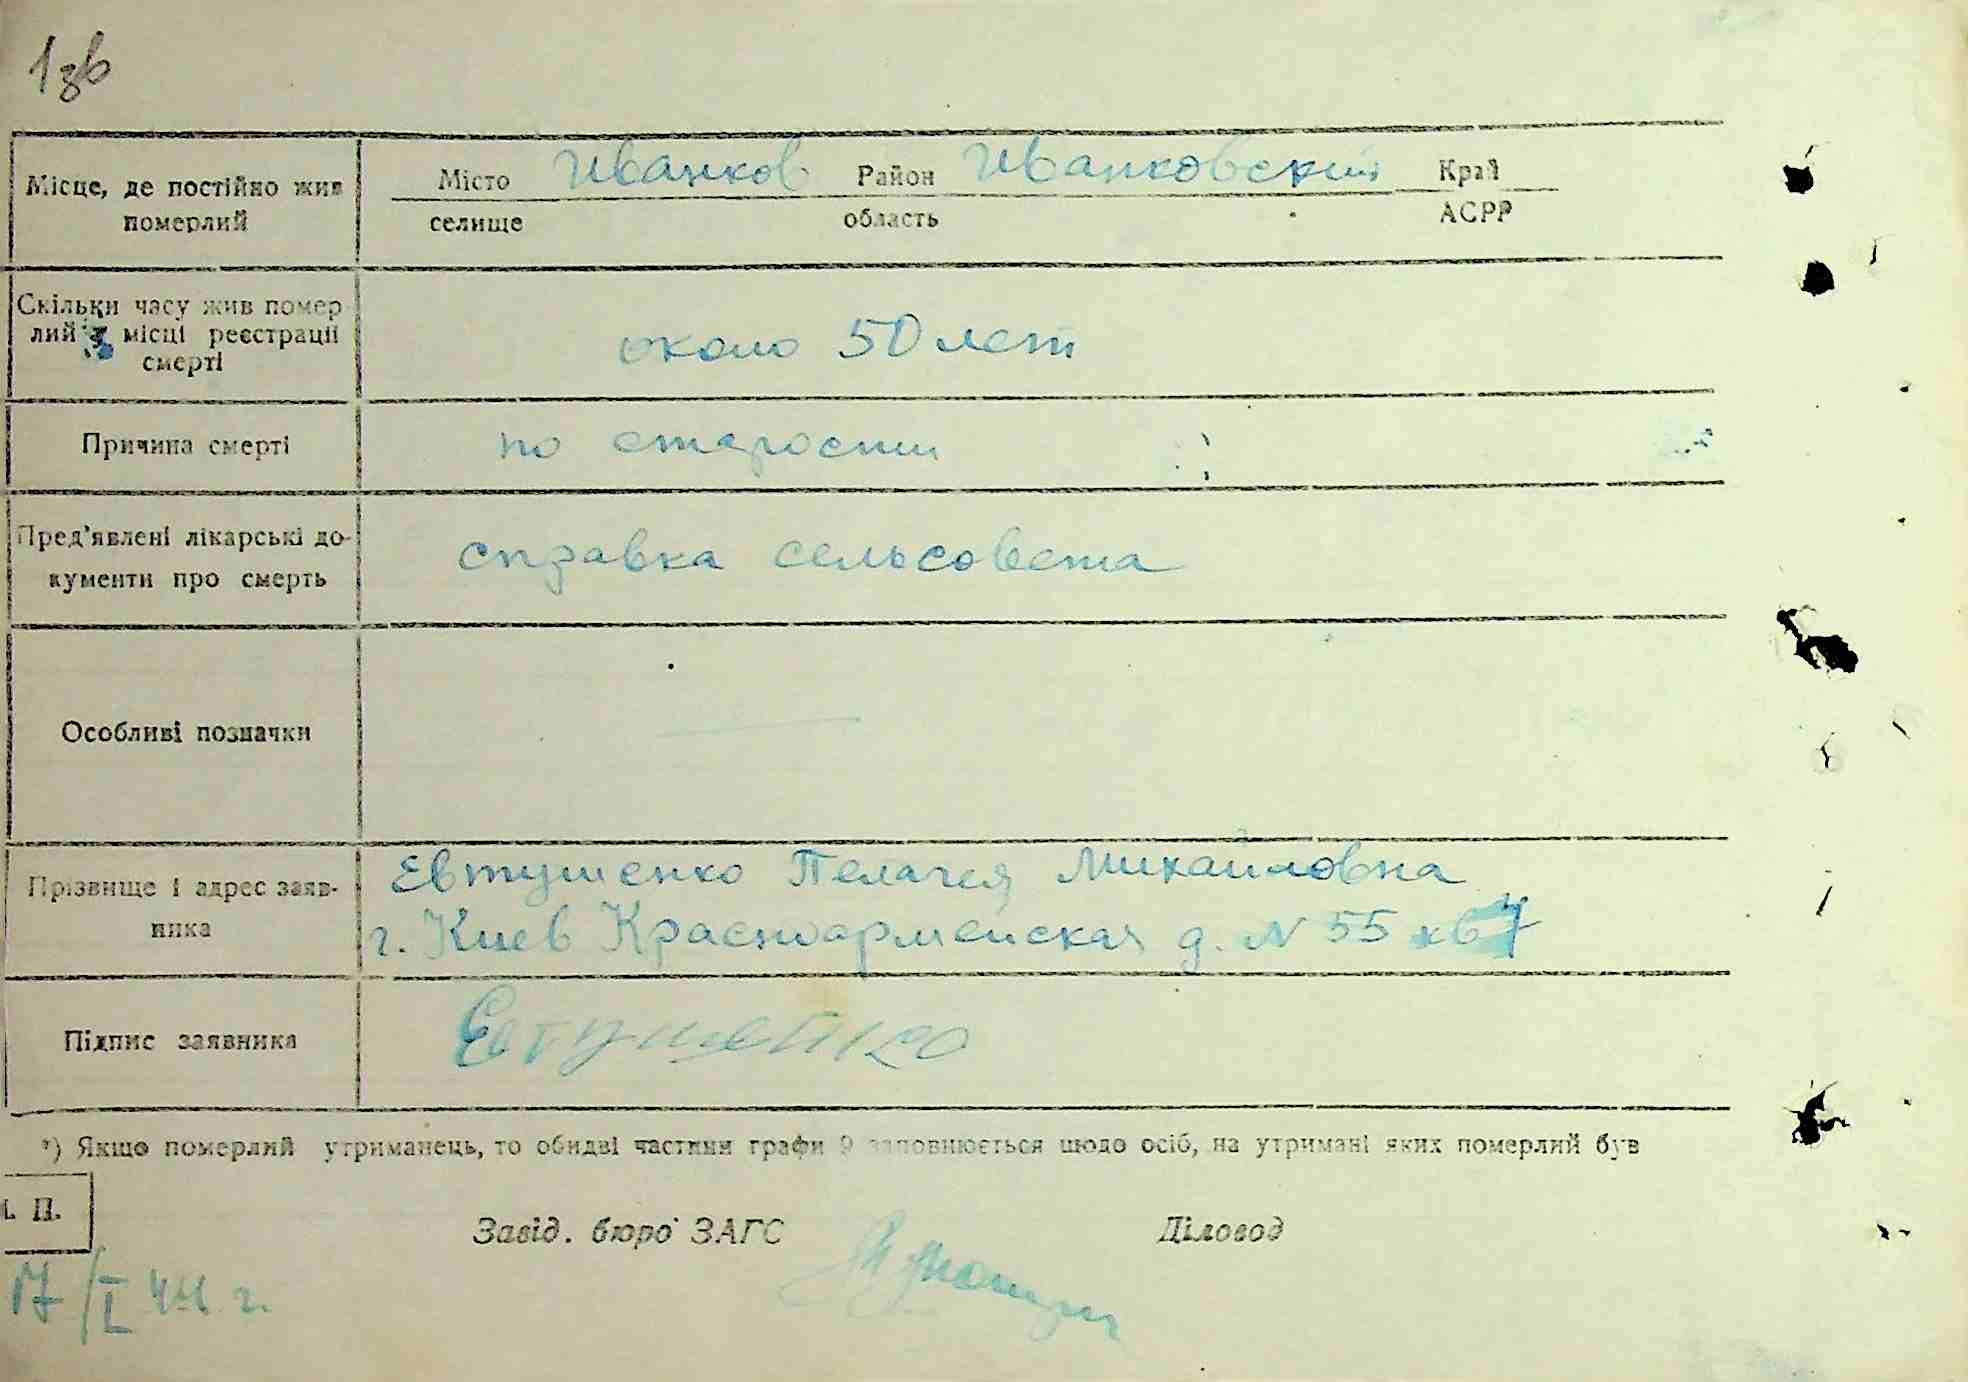 1зв
Місце, де постійно жив
померлий
Місто Иванков Район Иванковский Край
селище область АСРР
Скільки часу жив помер
лий в місці реєстрації
смерті
около 50 лет
Причина смерті
по старости
Пред'явлені лікарські до-
кументи про смерть
справка сельсовета
Особливі позначки
Прізвище і адрес заяв-
ника
Евтушенко Пелагея Михайловна
г. Киев Красноармейская д. N 55 кв 7
Підпис заявника
Евтушенко
*) Якщо померлий утриманець, то обидві частини графи 9 заповнюється щодо осіб, на утримані яких померлий був
П.
Завід. бюро ЗАГС Діловод
17/I 44 г.